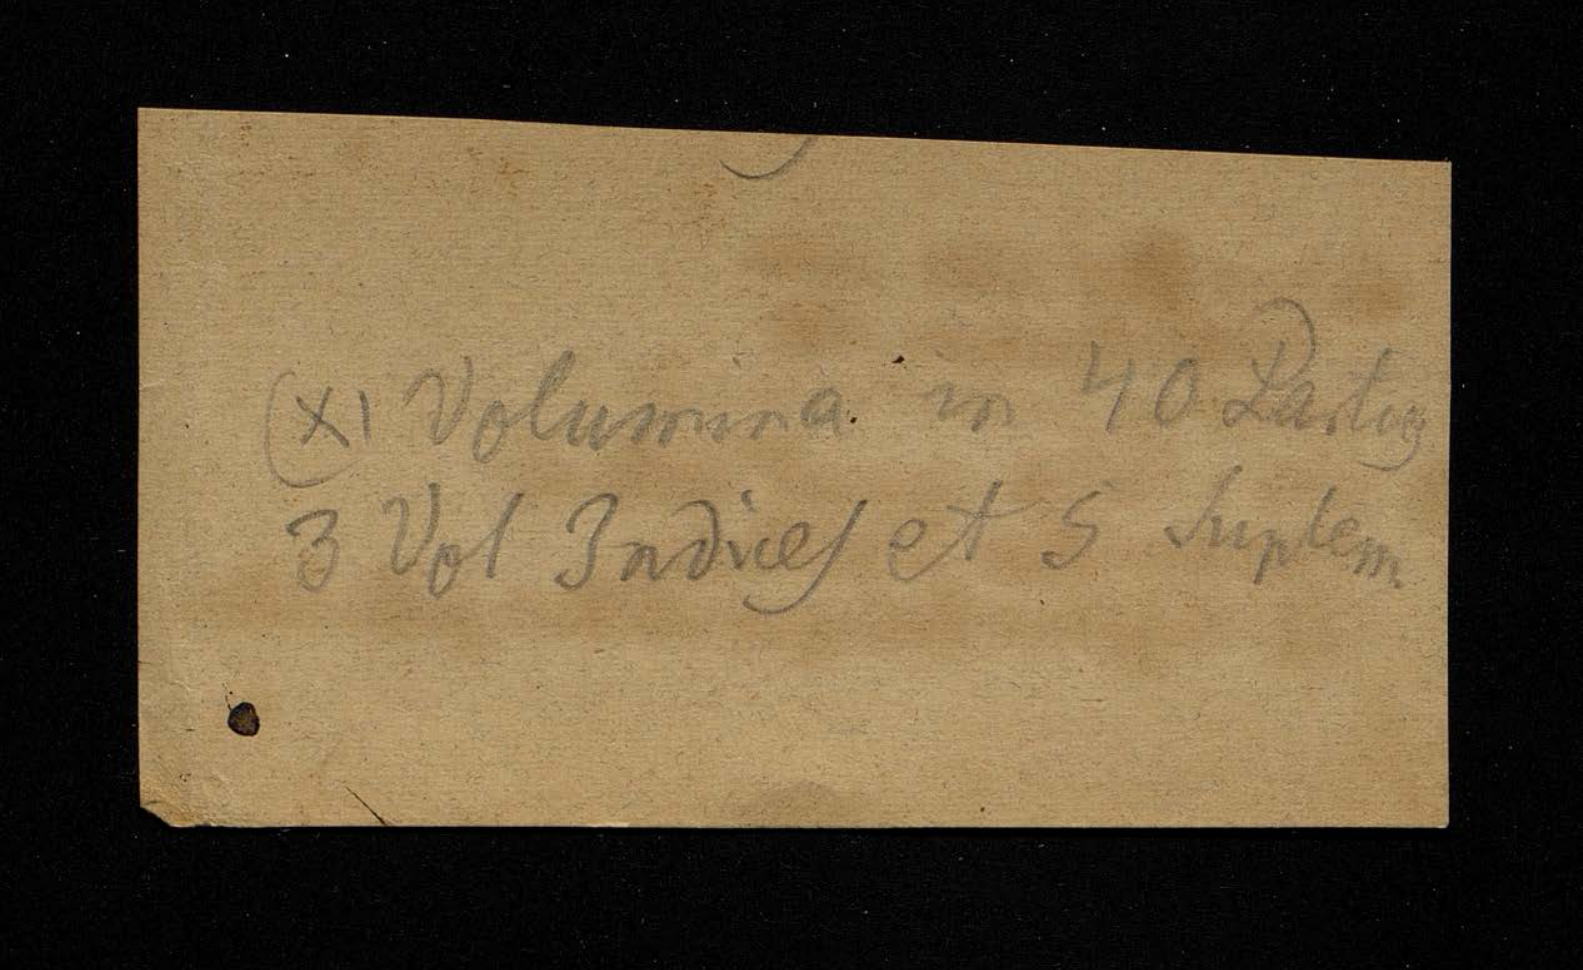 XI Volumina in 40 Partes
3 Vol Indices et 5 Suplem